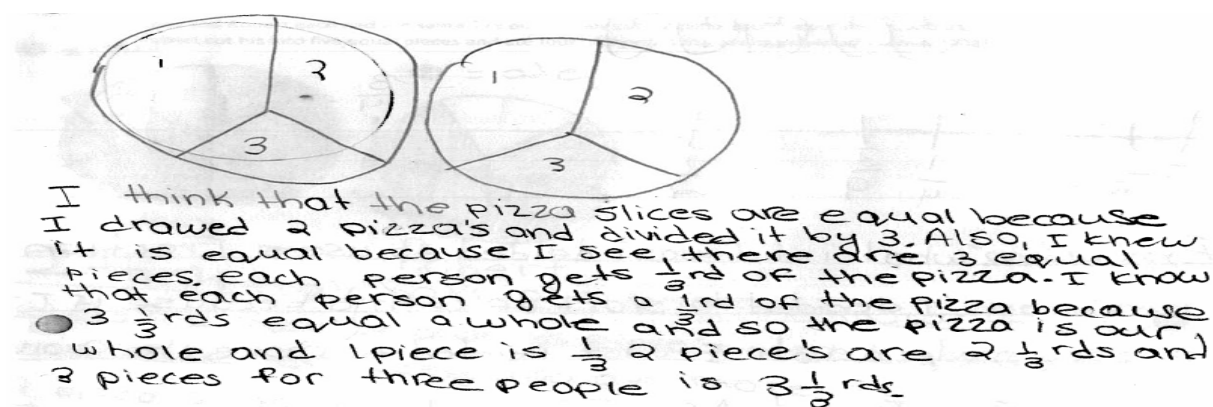 1 2 3
1 2 3
I think that the pizza slices are equal because
I drawed 2 pizza's and divided it by 3. Also, I knew
it is equal because I see there are 3 equal
pieces. each person gets 1/3rd of the pizza. I know
that each person gets a 1/3rd of the pizza because
3 1/3rds equal a whole and so the pizza is our
whole and 1 piece is 1/3 2 piece's are 2 1/3rds and
3 pieces for three people is 3 1/3rds.